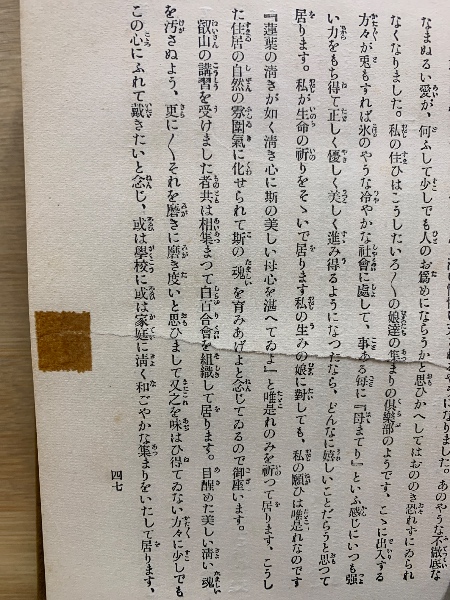 なまぬるい愛が、何ふして少しでも人のお爲めにならうかと思ひかへしてはおのゝき恐れずにゐられ
なくなりました。私の住ひはこうしたいろ〱の娘達の集まりの倶樂部のようです、こゝに出入する
方々が兎もすれば氷のやうな冷やかな社會に處して、事ある毎に『母まてり』といふ感じにいつも强
い力をもち得て正しく優しく美しく進み得るようになつたなら、どんなに嬉しいことだらうと思つて
居ります。私が生命の祈りをそゝいで居ります私の生みの娘に對しても、私の願ひは唯是れなのです
『蓮葉の淸さが如く淸き心に斯の美しい母心を湛へてゐよ』と唯是れのみを祈つて居ります、こうし
た住居の自然の雰圍氣に化せられて斯の魂を育みあげよと念じてゐるので御座います。
叡山の講習を受けました者共は相集まつて白百合會を組織して居ります。目醒めた美しい淸い魂
を汚さぬよう、更に〱それを磨きに磨き度いと思ひまして又之を味はひ得てゐない方々に少しでも
この心にふれて戴きたいと念じ、或は學校に或は家庭に淸く和ごやかな集まりをいたして居ります、
四七